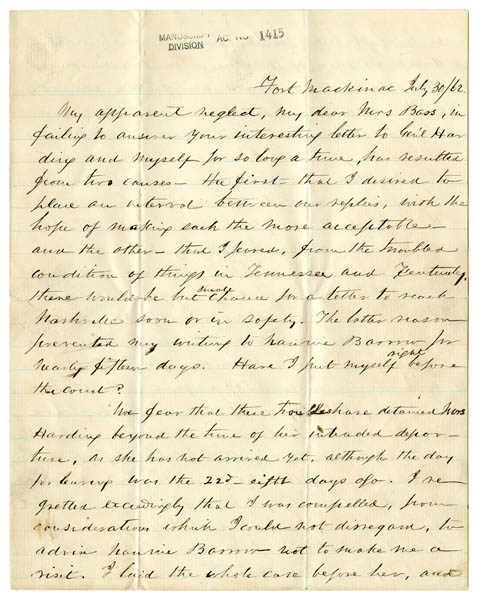 MANUSCRIPT
DIVISION
AC. NO. 1415
Fort Mackinac July 30/62.
My apparent neglect, my dear Mrs Bass, in
failing to answer your interesting letter to Gen'l Har
ding and myself for so long a time, has resulted
from two causes - the first - that I desired to
place an interval between our replies, with the
hope of making each the more acceptable -
and the other - that I feared, from the troubled
condition of things in Tennessee and Kentucky,
there would be but small chance for a letter to reach
Nashville soon or in safety. The latter reason
prevented my writing to Barrow for
nearly fifteen days. Have I put myself right before
the court?
We fear that these troubles have detained Mrs
Harding beyond the time of her intended depar-
ture, as she has not arrived yet, although the day
for leaving was the 22d - eight days ago. I re
gretted exceedingly that I was compelled, from
considerations which I could not disregard, to
advise Barrow not to make me a
visit. I laid the whole case before her, and